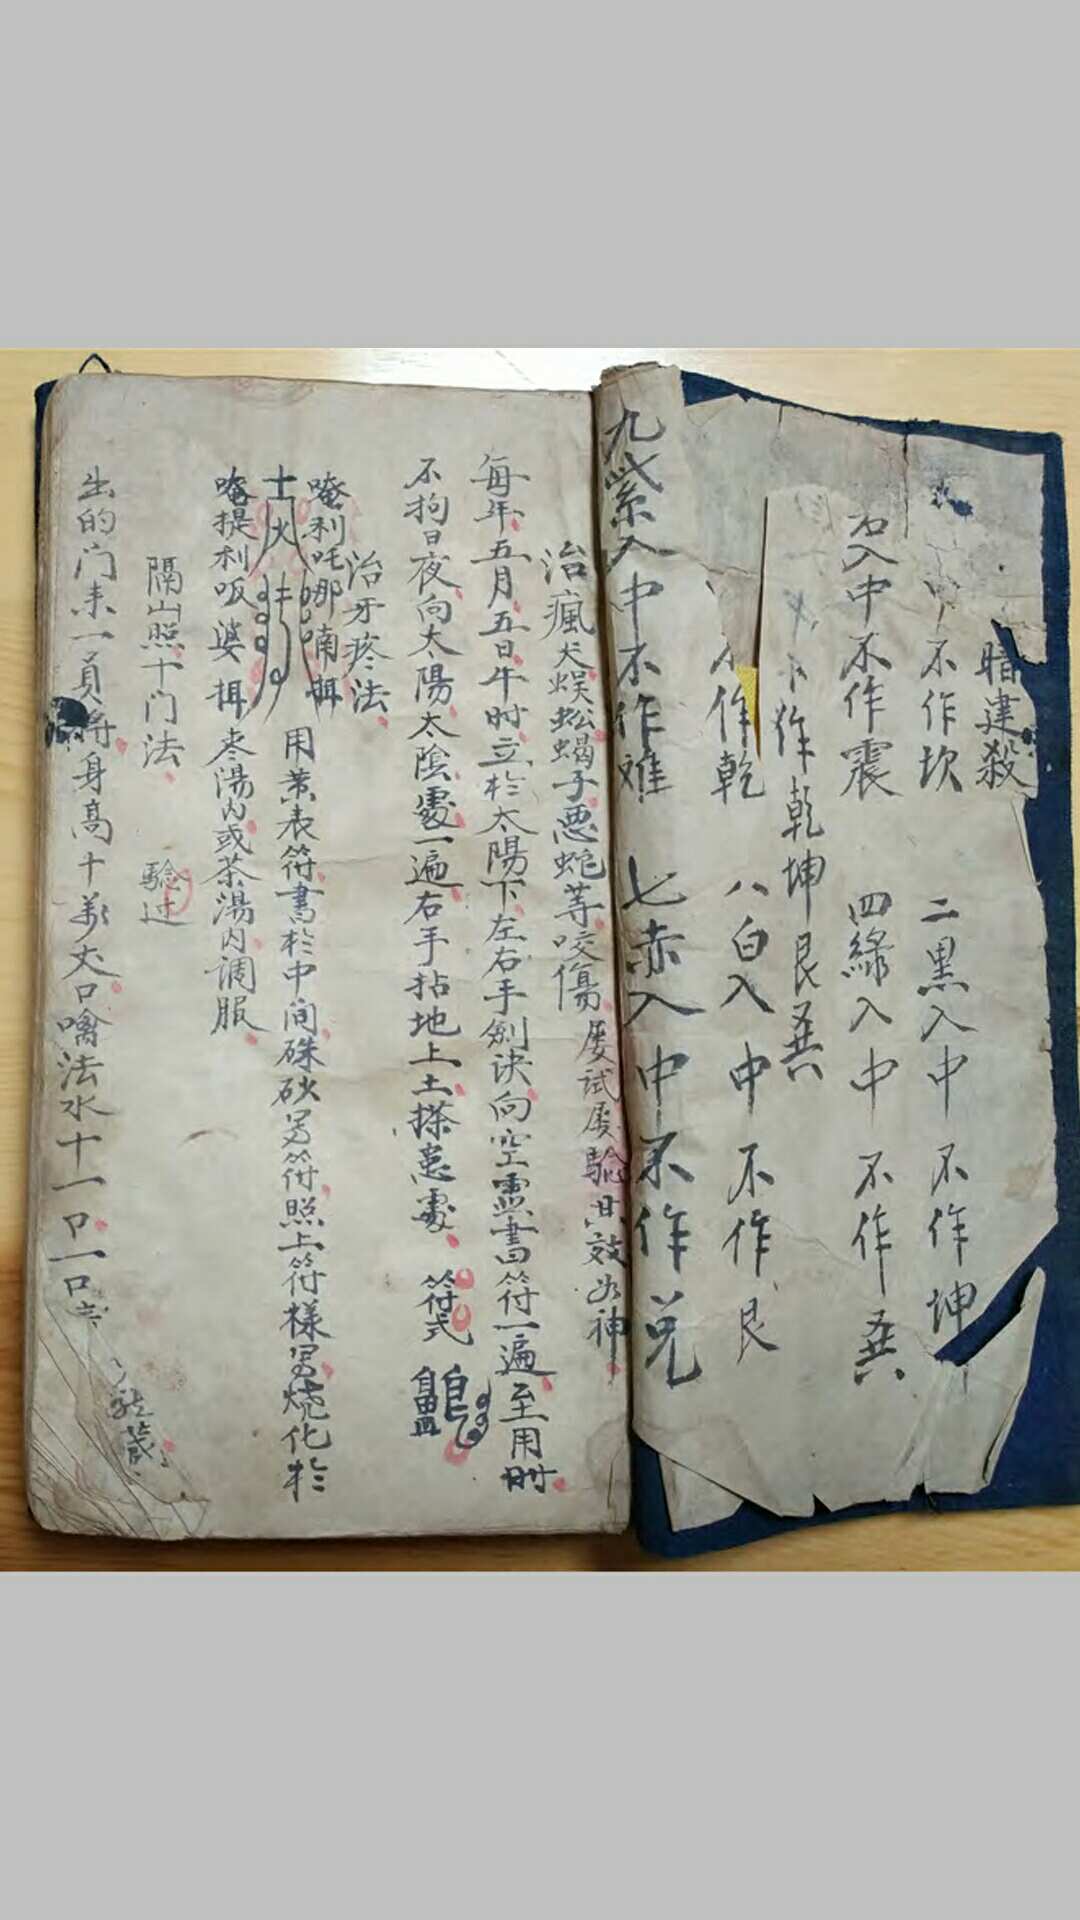 暗建殺
中不作坎　二黑入中不作坤
入中不作震　四綠入中不作巽
作乾坤艮巽
不作乾　八白入中不作艮
九紫入中不作離　七赤入中不作兌
治瘋犬蜈蚣蝎子惡蛇等咬傷　屡試屡驗其效如神
每年五月五日午时立於太陽下左右手劍诀向空靈書符一遍至用时
不拘日夜向太陽太陰處一遍右手拈地上土搽患處　符式
治牙疼法
唵利吒哪喃揖
士火
用黄表符書於中间硃砂另符照上符樣另烧化於
唵提利呶婆揖　枣湯內或茶湯内调服
隔山照十门法　驗过
出的门来一員将身高十萬丈口噙法水十一口一口